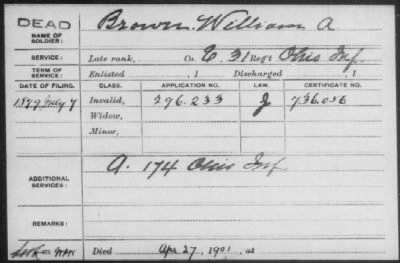 DEAD
NAME OF SOLDIER:
Brown, William A
SERVICE:
Late rank, Co. E, 31 Reg't Ohio Inf.
TERM OF SERVICE:
Enlisted , 1 Discharged , 1
DATE OF FILING. CLASS. APPLICATION NO. LAW. CERTIFICATE NO.
1879 July 7 Invalid, 296.233 J 736.056
Widow,
Minor,
ADDITIONAL SERVICES:
A. 174 Ohio Inf.
REMARKS:
Died Apr 27, 1901, at